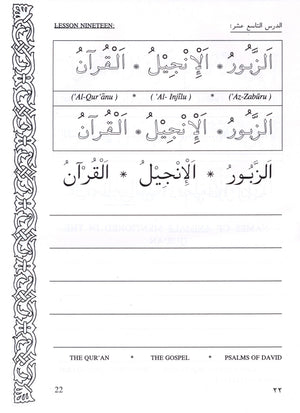 LESSON NINETEEN: الدرس التاسع عشر:
اَلزَّبُورُ * اَلْإِنْجِيْلُ * اَلْقُرْآنُ
('Al-Qur'ānu) * ('Al- Injīlu) * ('Az-Zabūru)
اَلزَّبُورُ * اَلْإِنْجِيْلُ * اَلْقُرْآنُ
اَلزَّبُورُ * اَلْإِنْجِيْلُ * اَلْقُرْآنُ
THE QUR'AN * THE GOSPEL * PSALMS OF DAVID
22 ٢٢